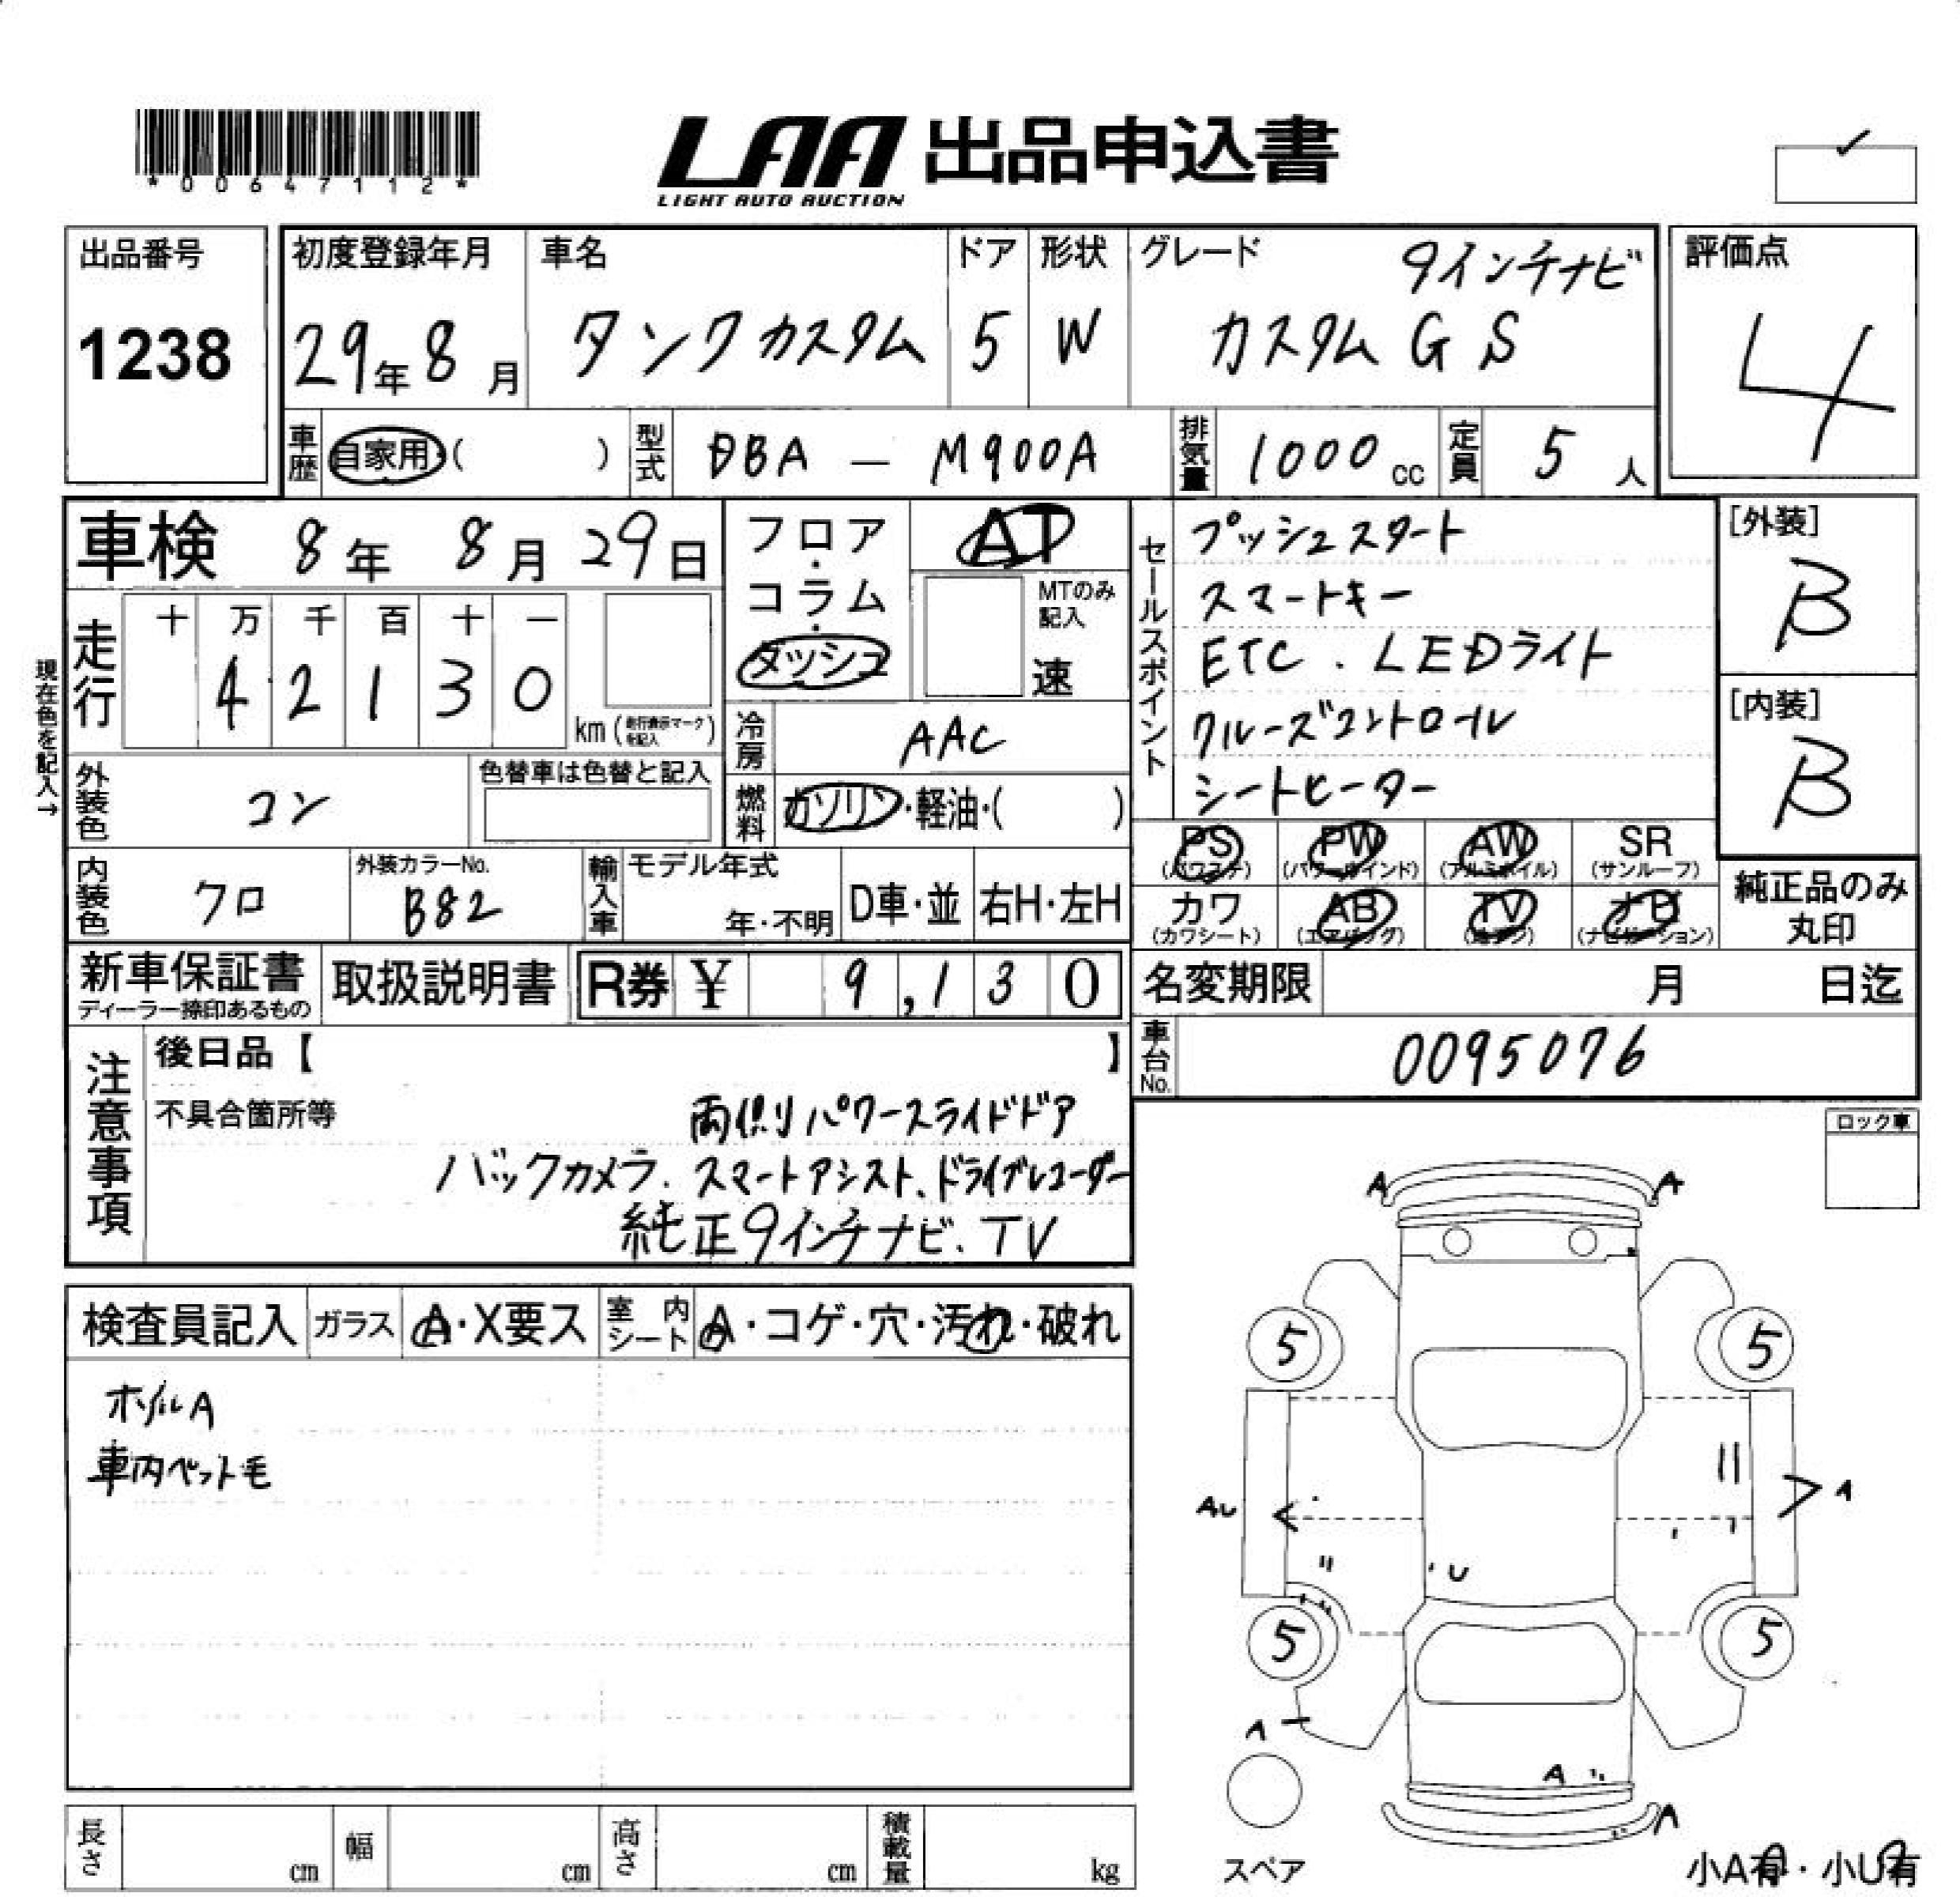 *00647112*
LAA 出品申込書
LIGHT AUTO AUCTION
出品番号
1238
初度登録年月
29年 8月
車名
タンクカスタム
ドア
5
形状
W
グレード
9インチナビ
カスタム G S
評価点
4
車歴 自家用・( )
型式 DBA - M900A
排気量 1000 cc
定員 5 人
車検 8年 8月 29日
フロア・コラム・ダッシュ
AT
MTのみ記入
速
セールスポイント
プッシュスタート
スマートキー
ETC . LEDライト
クルーズコントロール
シートヒーター
[外装]
B
[内装]
B
現在色を記入→
走行
十 万 千 百 十 一
4 2 1 3 0
km (走行表示マークを記入)
冷房 AAC
外装色 コン
色替車は色替と記入
燃料 ガソリン・軽油・( )
内装色 クロ
外装カラーNo.
B82
輸入車
モデル年式
年・不明
D車・並
右H・左H
PS (パワステ)
PW (パワーウインド)
AW (アルミホイル)
SR (サンルーフ)
カワ (カワシート)
AB (エアバッグ)
TV
ナビ (ナビゲーション)
純正品のみ丸印
新車保証書
ディーラー捺印あるもの
取扱説明書
R券 ¥ 9,130
名変期限 月 日迄
車台No. 0095076
注意事項
後日品【 】
不具合箇所等
両側パワースライドドア
バックカメラ. スマートアシスト、ドライブレコーダー
純正9インチナビ. TV
ロック車
検査員記入
ガラス A・X要ス
室内シート A・コゲ・穴・汚れ・破れ
ホイルA
車内ペット毛
A A
5 5
AU A
U
5 5
A
A
A
スペア
小A有・小U有
長さ cm
幅 cm
高さ cm
積載量 kg